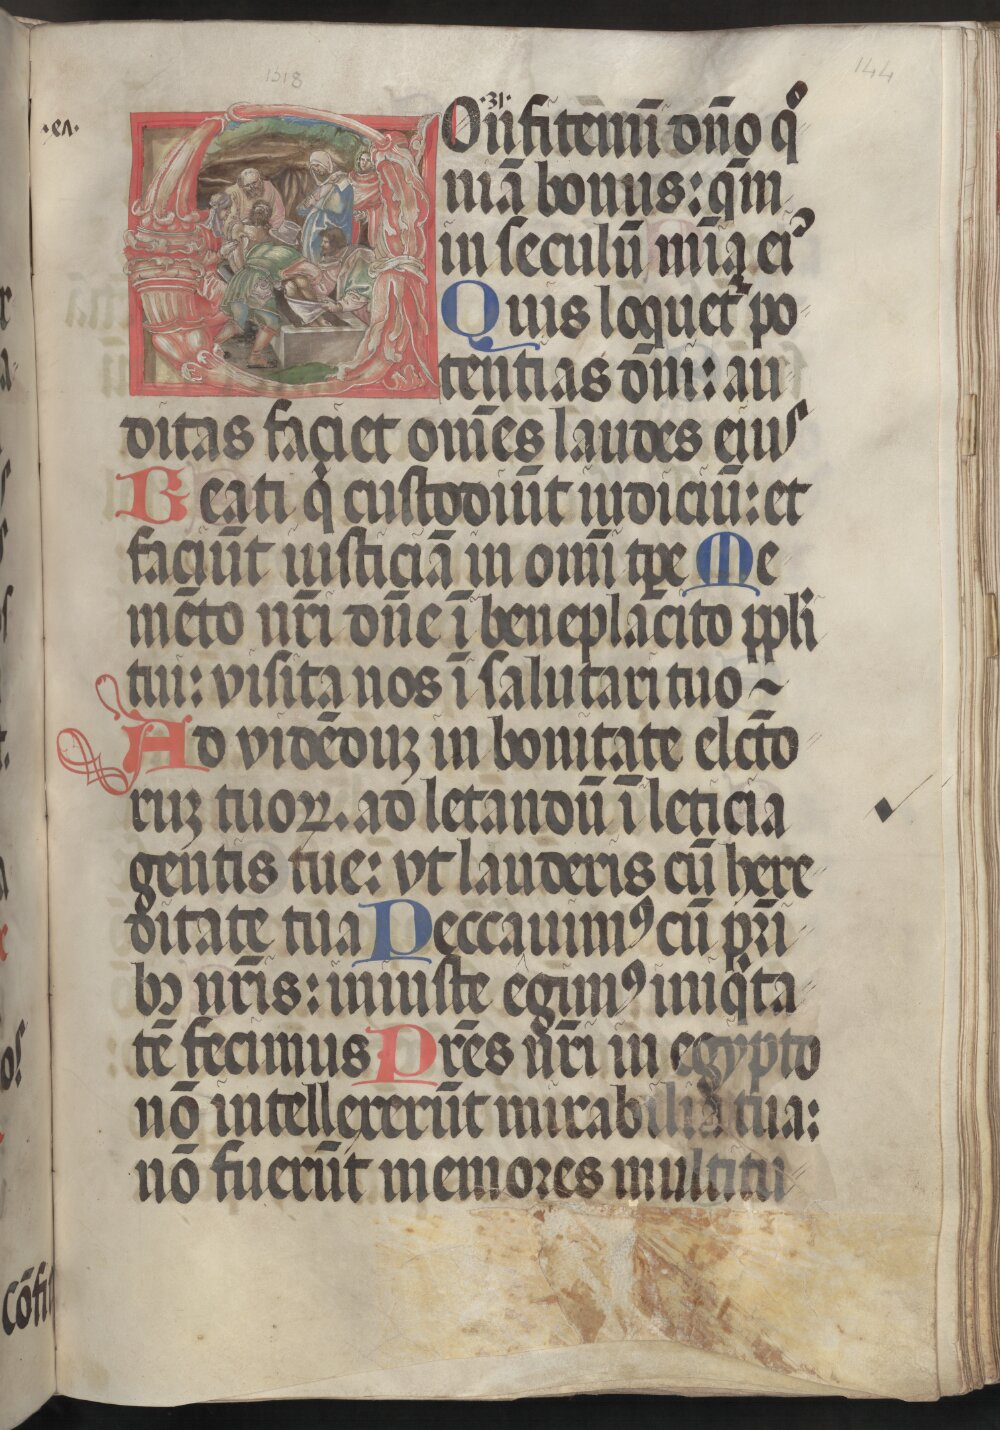 1518
144
·31·
Onfitemī dño q̊
niā bonus: qm̄
in seculū mīa ei⁹
Quis loquet᷑ po
tentias dñi: au
ditas faciet oēs laudes eius
Beati q̇ custodiūt iudiciū: et
faciūt iusticiā in omī tp̄e Me
mēto nr̄i dñe ī beneplacito ppl̄i
tui: visita nos ī salutari tuo ~
Ad vidēduꝫ in bonitate elc̄to
ruꝫ tuoꝝ. ad letandū ī leticia
gentis tue: vt lauderis cū here
ditate tua Peccauim⁹ cū pr̄i
bꝫ nr̄is: iniuste egim⁹ iniq̇ta
tē fecimus Pr̄es nr̄i in egypto
nō intellexerūt mirabilia tua:
nō fuerūt memores multitu
cōfit